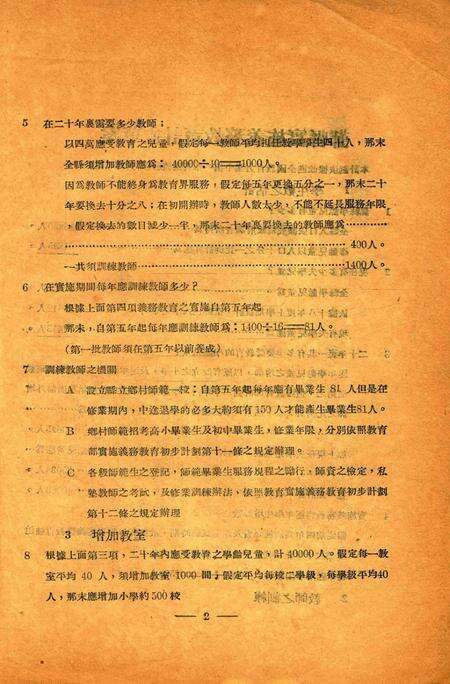 5 在二十年裏需要多少教師：
以四萬應受教育之兒童，假定每一教師平均担任教學學生四十人，那末
全縣須增加教師應爲：40000÷40＝1000人。
因爲教師不能終身爲教育界服務，假定每五年更換五分之一，那末二十
年要換去十分之八；在初開辦時，教師人數太少，不能不延長服務年限
，假定換去的數目減少一半，那末二十年裏要換去的教師應爲……
……400人。
一共須訓練教師……1400人。
6 在實施期間每年應訓練教師多少？
根據上面第四項義務教育之實施自第五年起
那末，自第五年起每年應訓練教師爲：1400÷16＝81人。
(第一批教師須在第五年以前養成)
7 訓練教師之機關
A 設立縣立鄉村師範一校：自第五年起每年應有畢業生 81 人但是在
修業期內，中途退學的必多大約須有150人才能產生畢業生81人。
B 鄉村師範招考高小畢業生及初中畢業生，修業年限，分別依照教育
部實施義務教育初步計劃第十一條之規定辦理。
C 各級師範生之登記，師範畢業生服務規程之勵行，師資之檢定，私
塾教師之考試，及修業訓練辦法，依照教育實施義務教育初步計劃
第十二條之規定辦理
3 增加教室
8 根據上面第三項，二十年內應受教育之學齡兒童，計 40000人。假定每一教
室平均 40 人，須增加教室 1000 間，假定平均每校二學級，每學級平均40
人，那末應增加小學約500校
— 2 —